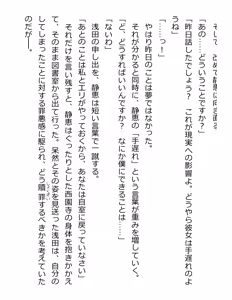 「あの……どういうことですか？」
「昨日話したでしょう？　これが現実への影響よ。どうやら彼女は手遅れのようね」
「……っ！」
やはり昨日のことは夢ではなかった。
それが分かると同時に、静恵の「手遅れ」という言葉が重みを増していく。
「ど、どうすればいいんですか？　なにか僕にできることは……」
「ないわ」
浅田の申し出を、静恵は短い言葉で一蹴する。
「あとのことは私とエリがやっておくから、あなたは自室に戻っていなさい」
それだけを言い残すと、静恵はぐったりとした西園寺の身体を抱きかかえて、そのまま図書室から出て行った。呆然とその姿を見送った浅田は、自分のしてしまったことに対する罪悪感に駆られ、どう贖罪するべきかを考えていたのだが――。